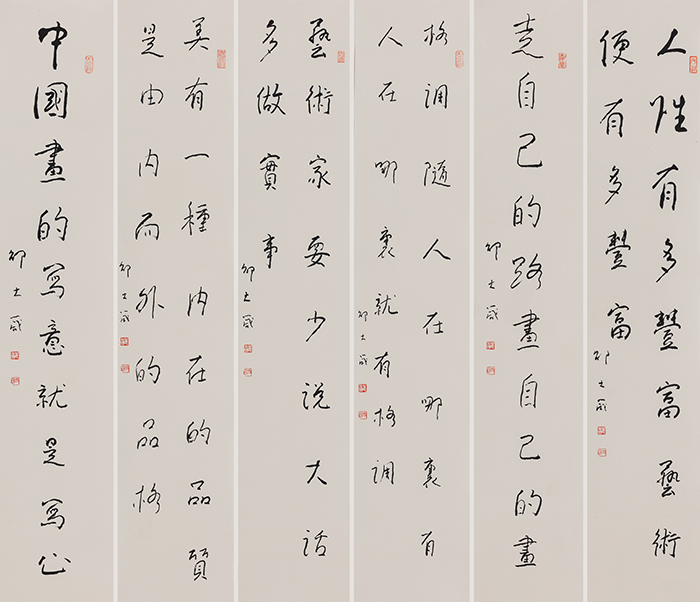 人性有多豐富藝術
便有多豐富
邵大箴
走自己的路畫自己的畫
邵大箴
格調隨人在哪裏有
人在哪裏就有格調
邵大箴
藝術家要少说大话
多做實事
邵大箴
美有一種内在的品質
是由内而外的品格
邵大箴
中國畫的寫意就是寫心
邵大箴